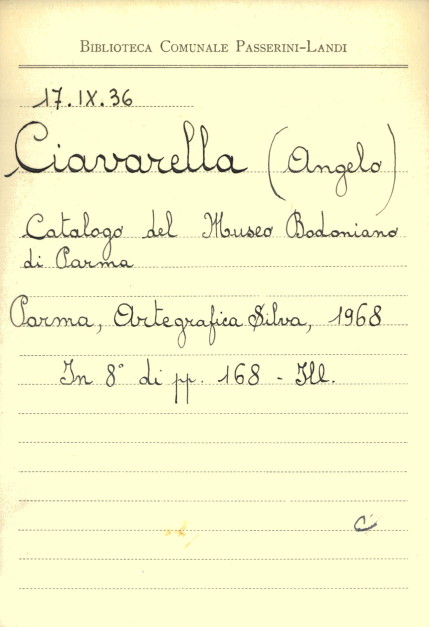 BIBLIOTECA COMUNALE PASSERINI-LANDI
17.IX.36
Ciavarella (Angelo)
Catalogo del Museo Bodoniano
di Parma
Parma, Artegrafica Silva, 1968
In 8° di pp. 168 - Ill.
C